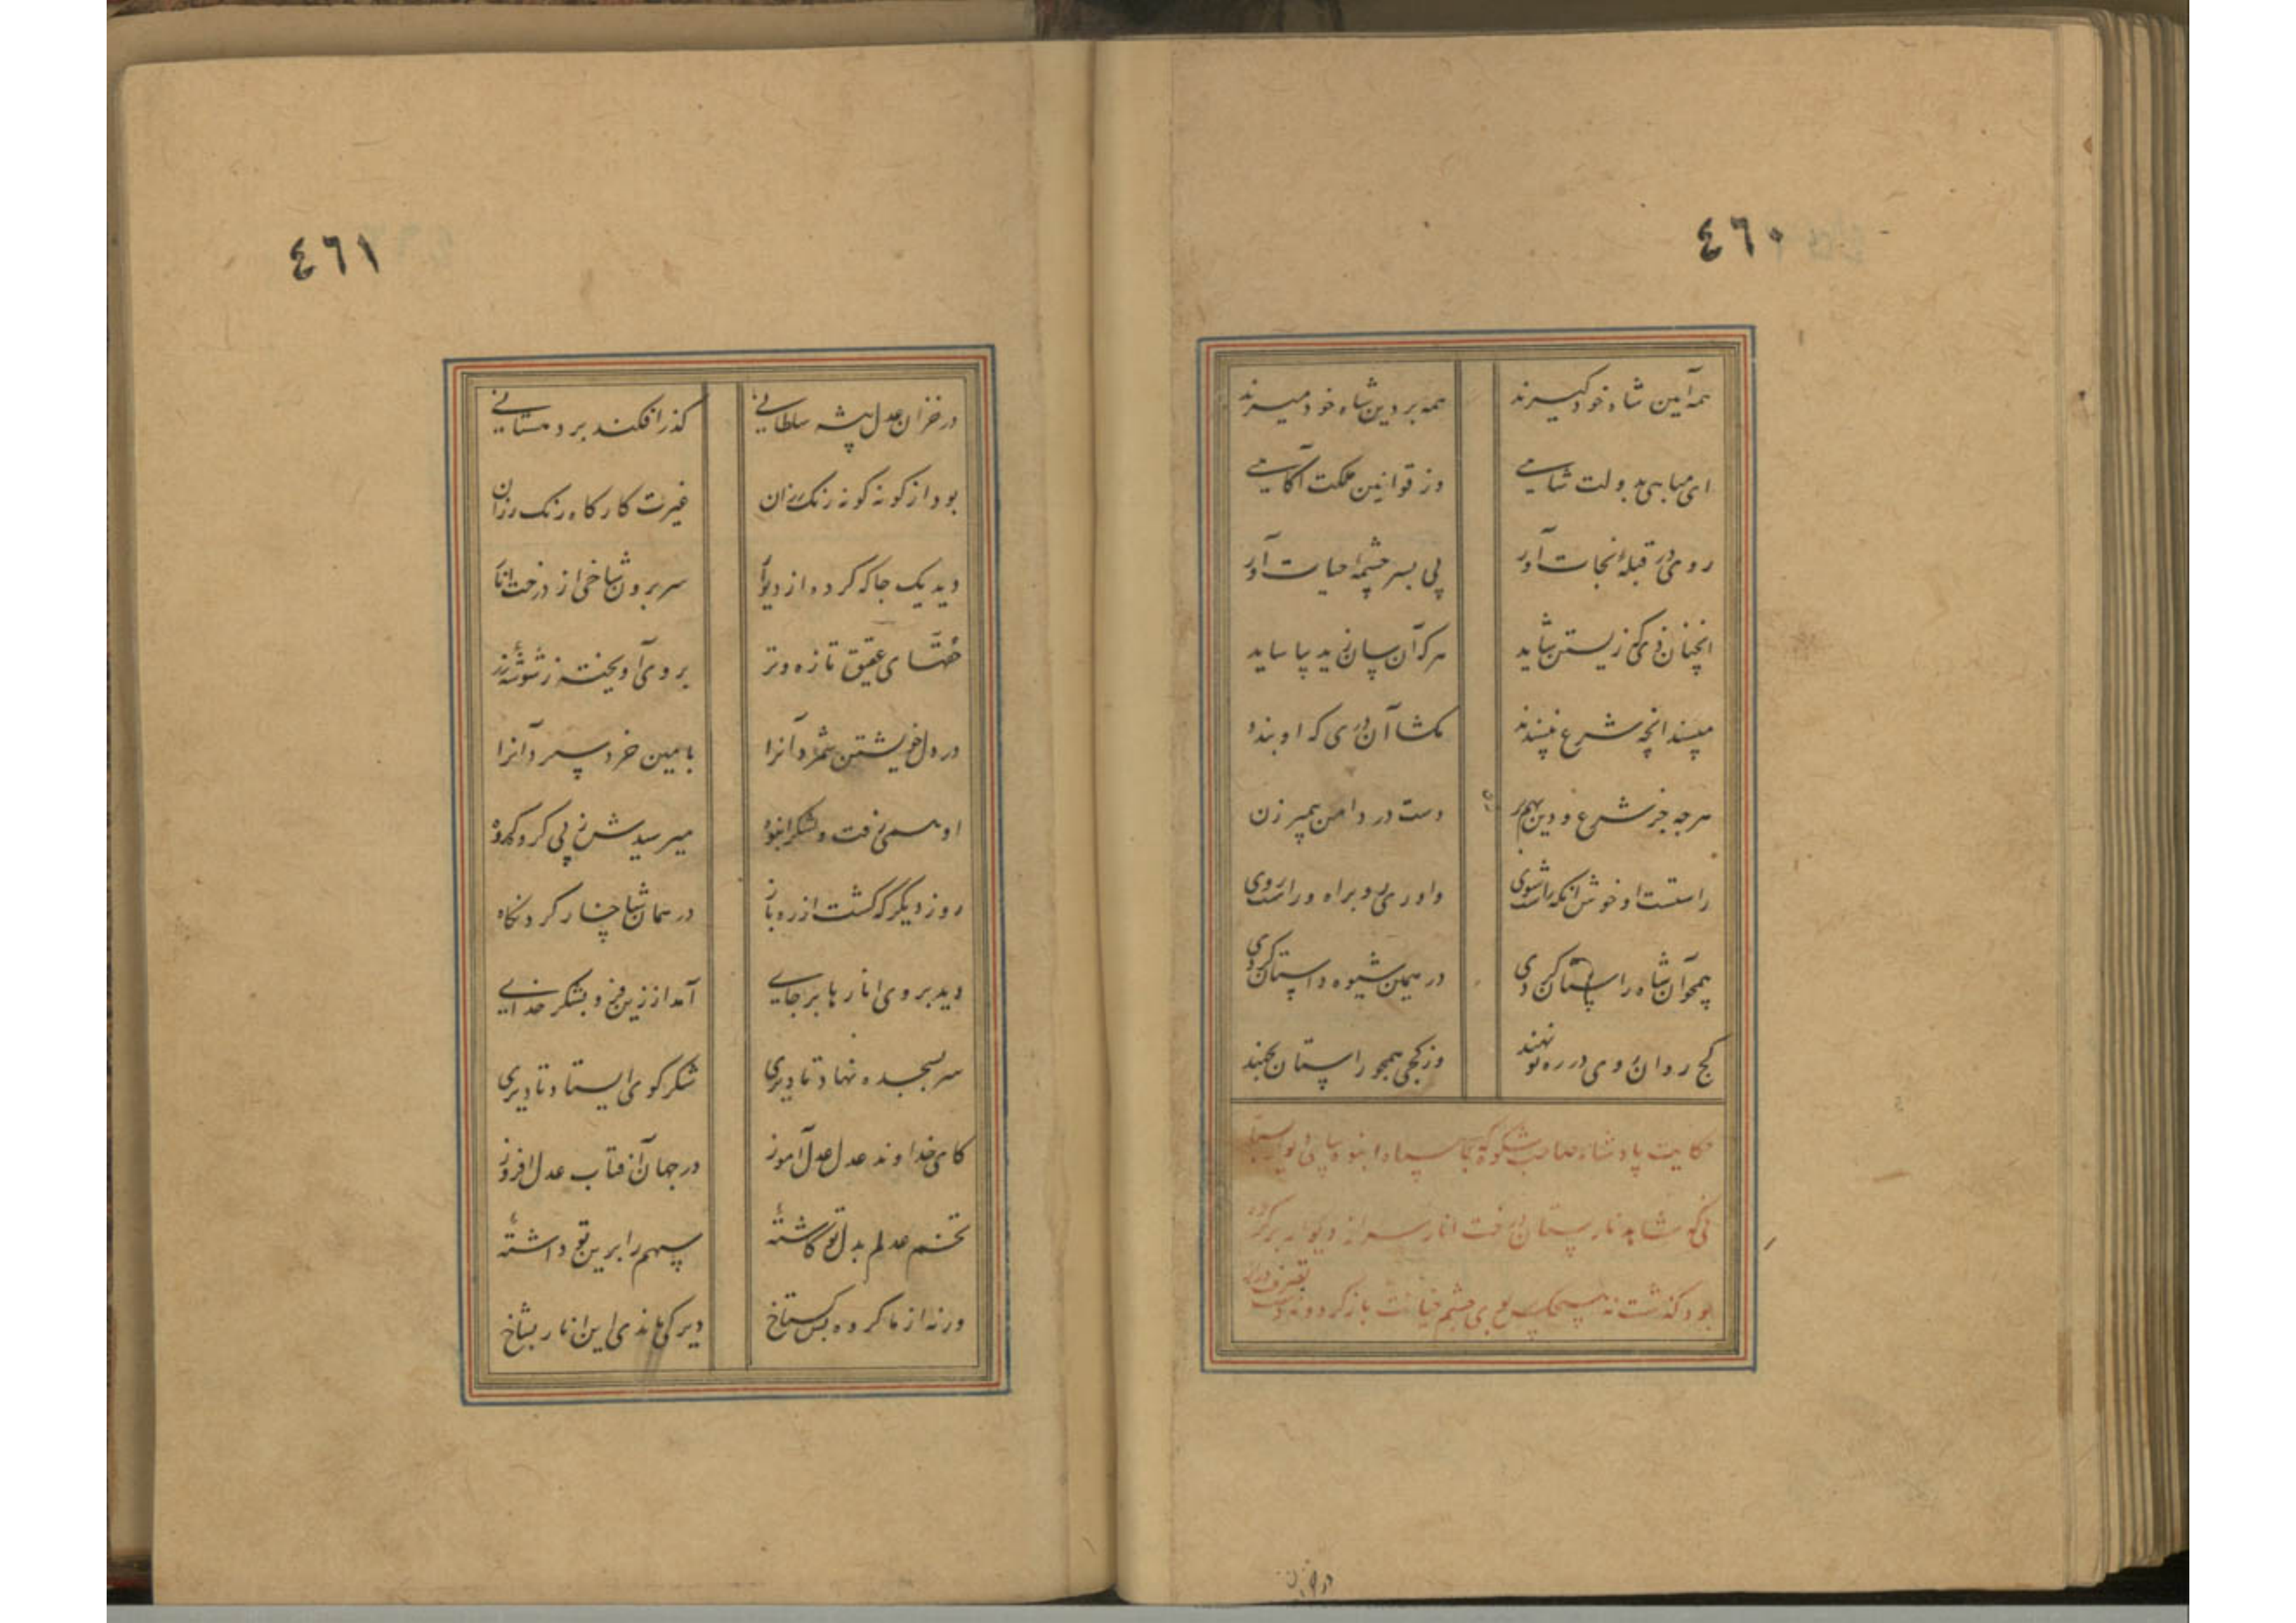 ٤٦٠
همه آیین شاه خود گیرند همه بر دین شاه خود میرند
ای مباهی بدولت شاهی وز قوانین مملکت آگاهی
روی در قبلهٔ نجات آور پی بسر چشمهٔ حیات آور
انچنان زی که زیستن شاید هر که آن سان زید بیاساید
مپسند انچه شرع نپسندد مگشا آن دری که او بندد
هرچه جز شرع و دین بهم بر زن دست در دامن پیمبر زن
راستست او خوش انکه راست شوی داوری و براه راست روی
همچو آن شاه راستان گردی در همین شیوه داستان گردی
کج روان روی در ره تو نهند وز کجی همچو راستان بجهند
حکایت پادشاه صاحب شکوه که با سپاه انبوه بپای دیوار بستان
که شاید نارپستان رفت انار سر از دیوار بر کرده
بود گذشت نه هیچکس بوی چشم خیانت باز کرد و نه دست تصرف دراز
در خزان
٤٦١
در خزان عدل پیشه سلطانی گذر افکند بر دهستانی
بود از گونه گونه رنگ رزان غیرت کارگاه رنگ رزان
دید یک جا که کرده از دیوار سر برون شاخی از درخت انار
حقهای عقیق تازه و تر بر وی آویخته ز شوشهٔ زر
در دل خویشتن شمرد آنرا بامین خرد سپرد آنرا
او همی رفت و لشکر انبوه میرسیدش ز پی گروه گروه
روز دیگر که گشت از ره باز در همان شاخسار کرد نگاه
دید بر وی انارها بر جای آمد از زین فرو بشکر خدای
سر بسجده نهاد تا دیری شکر گوی ایستاد تا دیری
کای خداوند عدل عدل آموز در جهان آفتاب عدل افروز
تخم عدلم بدل تو کاشتهٔ سپهم را برین تو داشتهٔ
ورنه از ما گروه بس گستاخ دیر کی ماندی این انار بشاخ